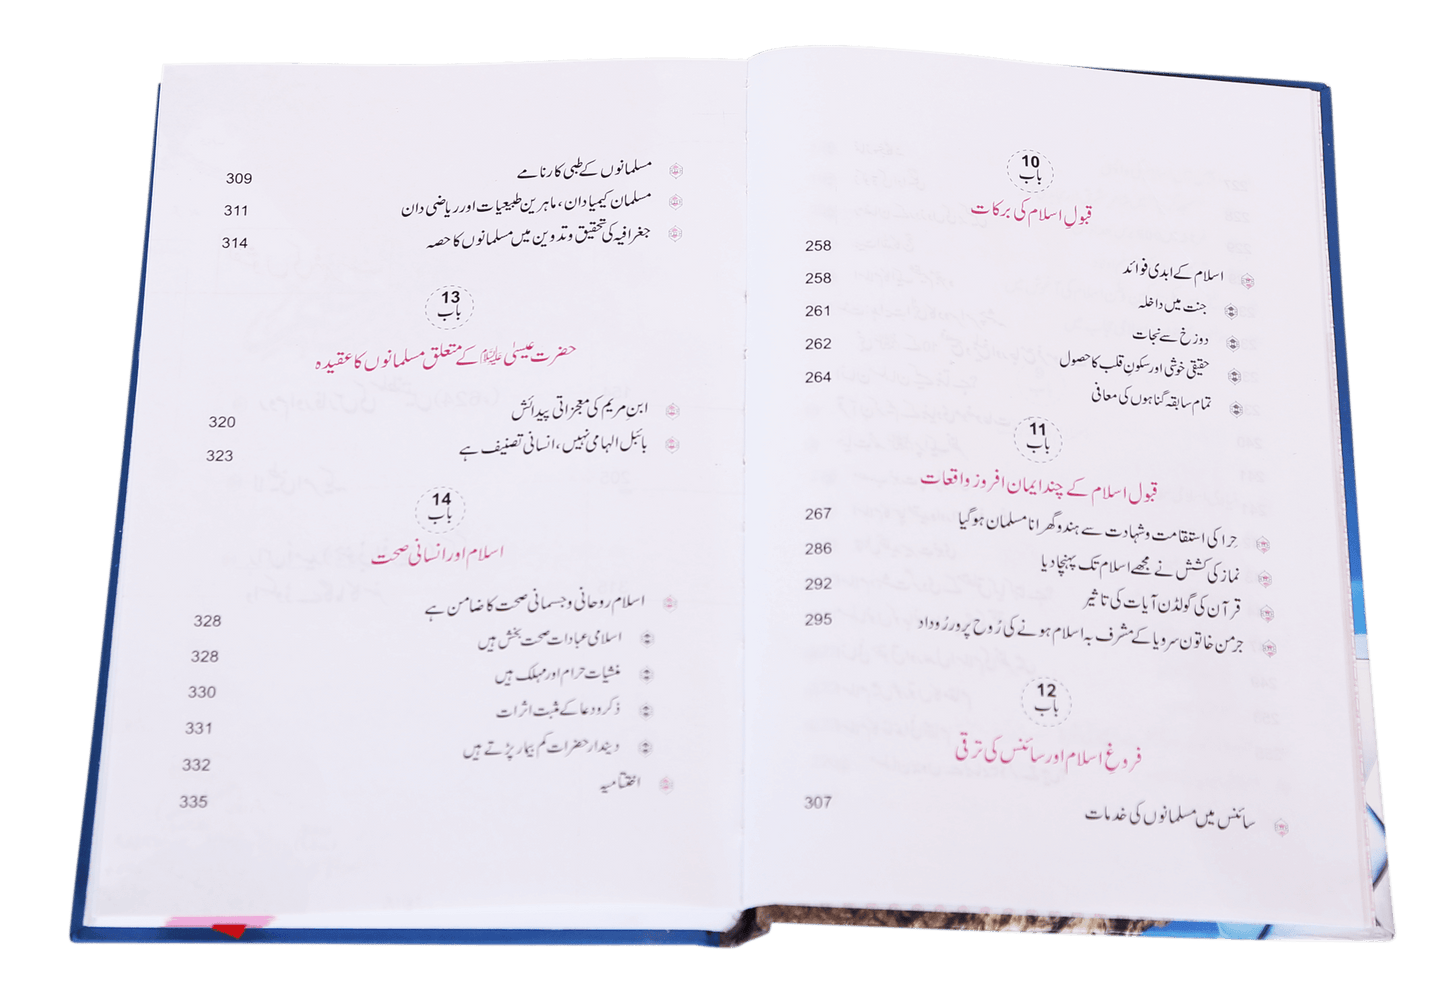 10
باب
قبولِ اسلام کی برکات
258
اسلام کے ابدی فوائد 258
جنت میں داخلہ 261
دوزخ سے نجات 262
حقیقی خوشی اور سکونِ قلب کا حصول 264
تمام سابقہ گناہوں کی معافی
11
باب
قبول اسلام کے چند ایمان افروز واقعات
حرا کی استقامت و شہادت سے ہندو گھرانا مسلمان ہوگیا 267
نماز کی کشش نے مجھے اسلام تک پہنچا دیا 286
قرآن کی گولڈن آیات کی تاثیر 292
جرمن خاتون سرویا کے مشرف بہ اسلام ہونے کی رُوح پرور رُوداد 295
12
باب
فروغِ اسلام اور سائنس کی ترقی
سائنس میں مسلمانوں کی خدمات 307
مسلمانوں کے طبی کارنامے 309
مسلمان کیمیا دان، ماہرین طبیعیات اور ریاضی دان 311
جغرافیہ کی تحقیق و تدوین میں مسلمانوں کا حصہ 314
13
باب
حضرت عیسیٰ علیہ السلام کے متعلق مسلمانوں کا عقیدہ
ابنِ مریم کی معجزاتی پیدائش 320
بائبل الہامی نہیں، انسانی تصنیف ہے 323
14
باب
اسلام اور انسانی صحت
اسلام روحانی و جسمانی صحت کا ضامن ہے 328
اسلامی عبادات صحت بخش ہیں 328
منشیات حرام اور مہلک ہیں 330
ذکر و دعا کے مثبت اثرات 331
دیندار حضرات کم بیمار پڑتے ہیں 332
اختتامیہ 335